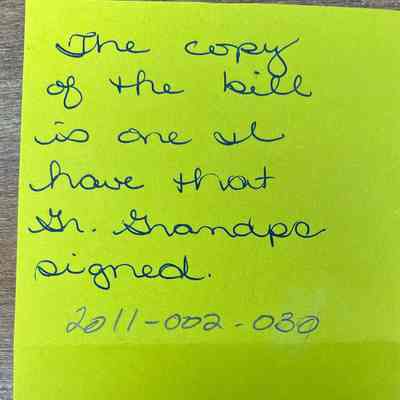 The copy
of the bill
is one I
have that
Gr. Grandpa
signed.
2011-002-030